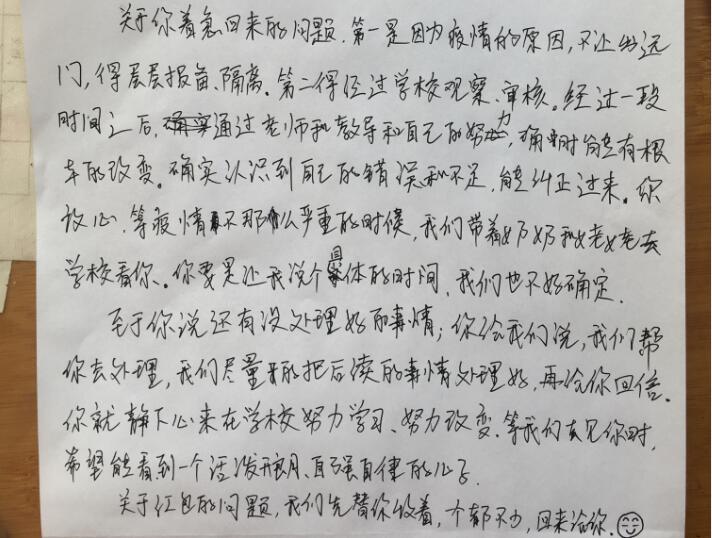 关于你着急回来的问题.第一是因为疫情的原因,不让出远
门,得层层报备、隔离。第二得经过学校观察、审核。经过一段
时间之后,通过老师和教导和自己的努力,确实能有根
本的改变。确实认识到自己的错误和不足,能纠正过来。你
放心,等疫情不那么严重的时候,我们带着奶奶和姥姥去
学校看你。你要是让我说个具体的时间,我们也不好确定.
至于你说还有没处理好的事情;你给我们说,我们帮
你去处理,我们尽量的把后续的事情处理好,再给你回信.
你就静下心来在学校努力学习、努力改变.等我们去见你时,
希望能看到一个活泼开朗、自强自律的儿子.
关于红包的问题,我们先替你收着,个都不少,回来给你.